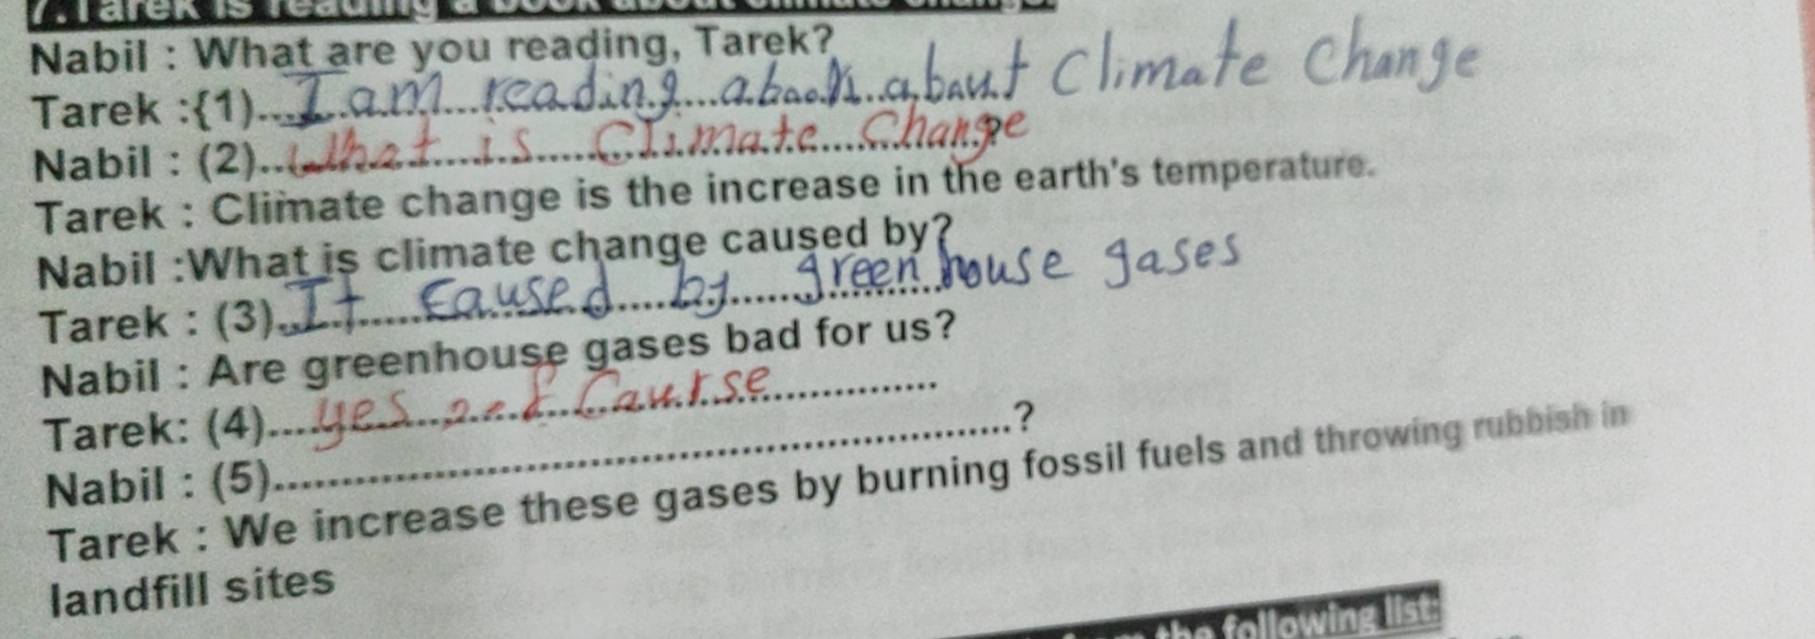 7.Tarek is reading a book about climate change.
Nabil : What are you reading, Tarek?
Tarek :{1)....I am...reading...abook..about Climate Change
Nabil : (2)..What is Climate Change
Tarek : Climate change is the increase in the earth's temperature.
Nabil :What is climate change caused by?
Tarek : (3)..It caused by greenhouse gases
Nabil : Are greenhouse gases bad for us?
Tarek: (4)....yes of Caurse..............
Nabil : (5)......................................................?
Tarek : We increase these gases by burning fossil fuels and throwing rubbish in
landfill sites
the following list: